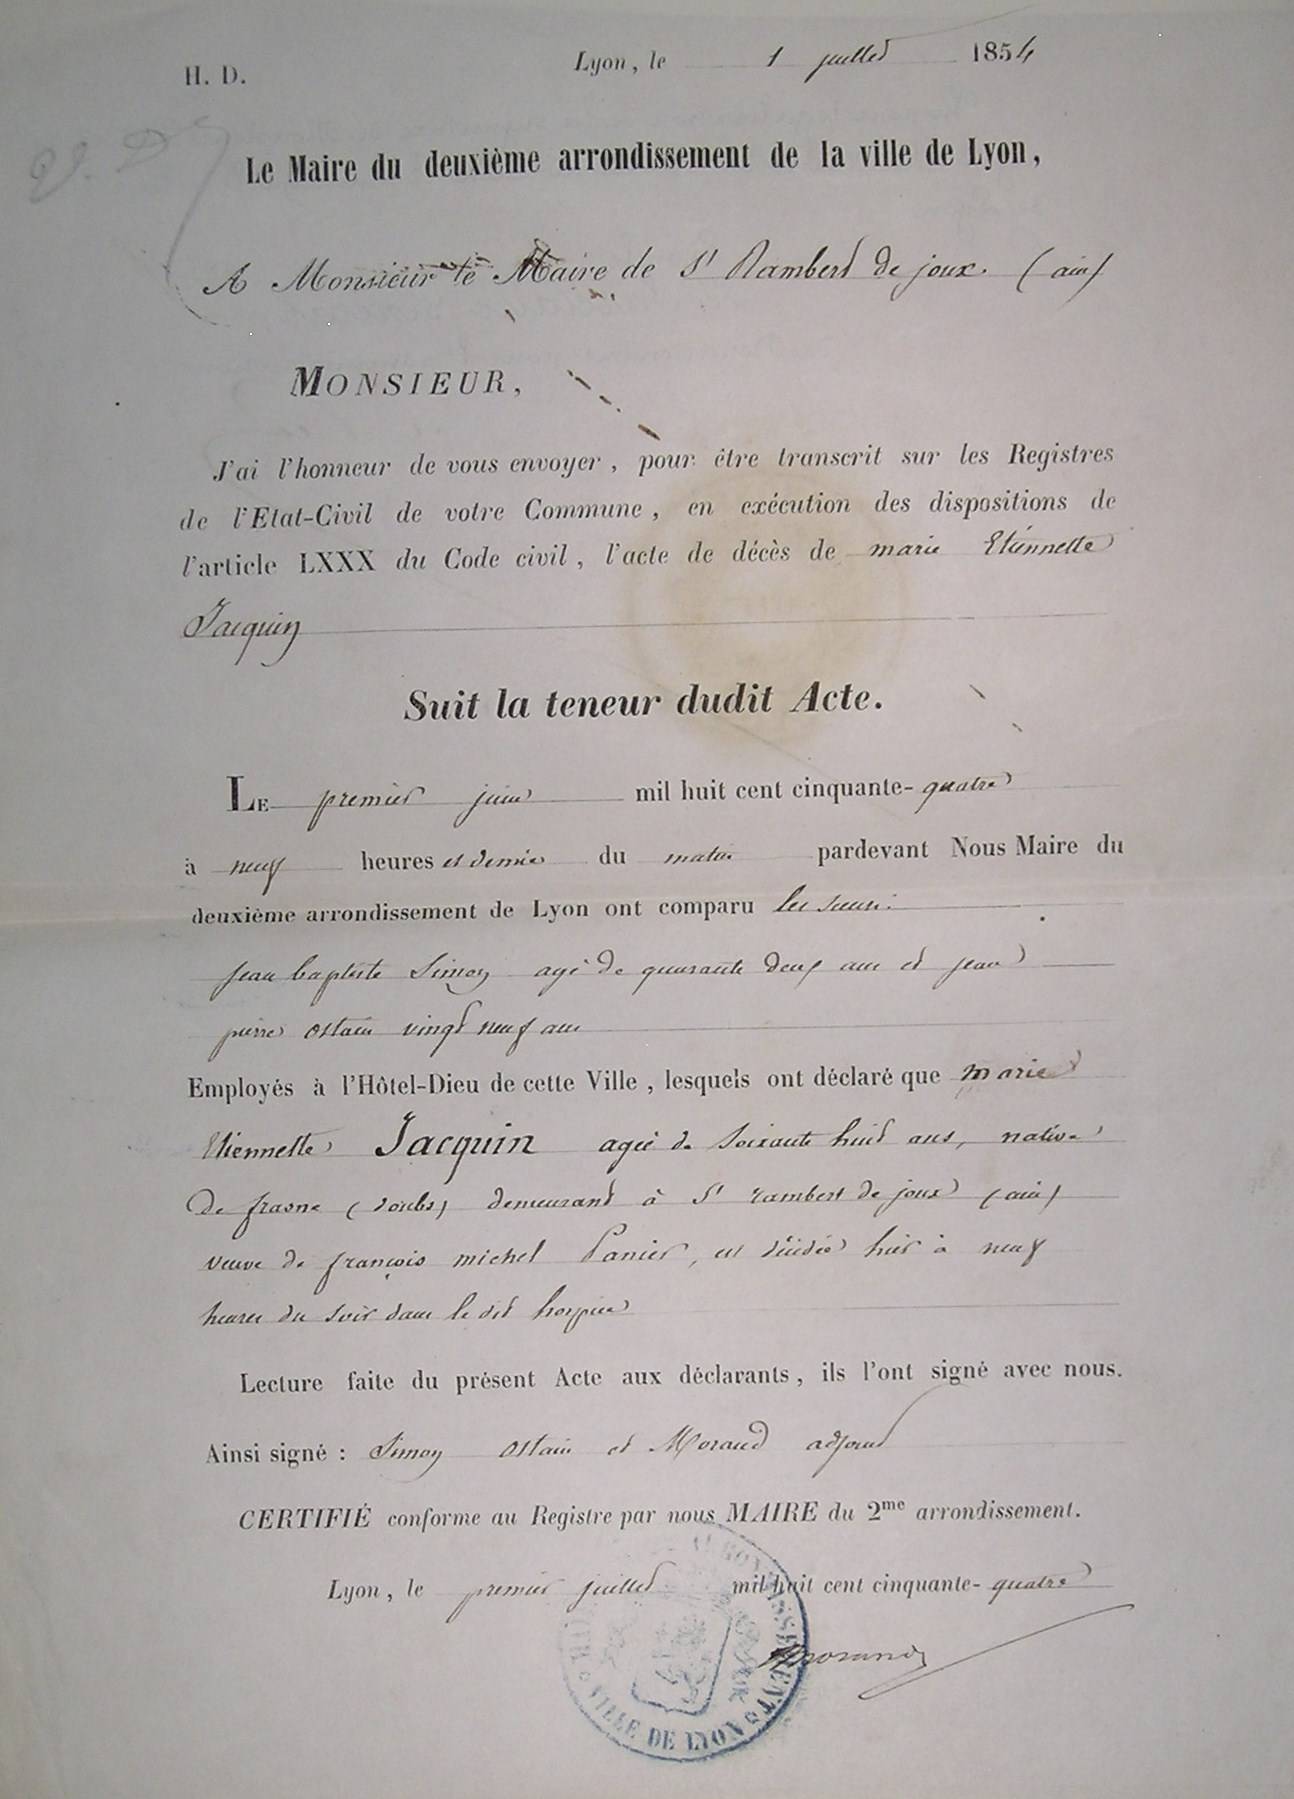 H. D.
Lyon, le 1 juillet 1854
Le Maire du deuxième arrondissement de la ville de Lyon,
A Monsieur le Maire de St Rambert de joux (ain)
MONSIEUR,
J'ai l'honneur de vous envoyer, pour être transcrit sur les Registres
de l'Etat-Civil de votre Commune, en exécution des dispositions de
l'article LXXX du Code civil, l'acte de décès de marie Etiennette
Jacquin
Suit la teneur dudit Acte.
LE premier juin mil huit cent cinquante-quatre
à neuf heures et demie du matin pardevant Nous Maire du
deuxième arrondissement de Lyon ont comparu les sieurs
jean baptiste Simon agé de quarante deux ans et jean
pierre ostain vingt neuf ans
Employés à l'Hôtel-Dieu de cette Ville, lesquels ont déclaré que marie
Etiennette Jacquin agée de soixante huit ans, native
de frasne (doubs) demeurant à St rambert de joux (ain)
veuve de françois michel Panier, est décédée hier à neuf
heures du soir dans le dit hospice
Lecture faite du présent Acte aux déclarants, ils l'ont signé avec nous.
Ainsi signé : Simon ostain et Morand adjoint
CERTIFIÉ conforme au Registre par nous MAIRE du 2me arrondissement.
Lyon, le premier juillet mil huit cent cinquante-quatre
Morand
ARRONDISSEMENT VILLE DE LYON